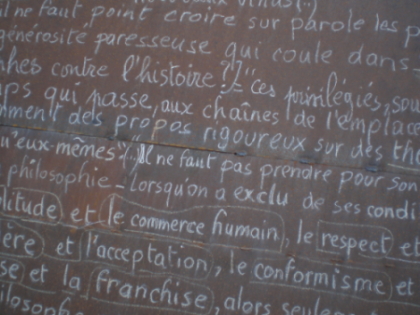 il ne faut point croire sur parole les p
générosité paresseuse qui coule dans
hes contre l'histoire?]-"ces privilégiés, son
ps qui passe, aux chaînes de l'empla
ment dels propos rigoureux sur des th
u'eux-mêmes"(Il ne faut pas prendre pour son
philosophie - lorsqu'on a exclu de ses condi
litude et le commerce humain, le respect et
ère et l'acceptation, le conformisme et
se et la franchise, alors seule
ilosoph